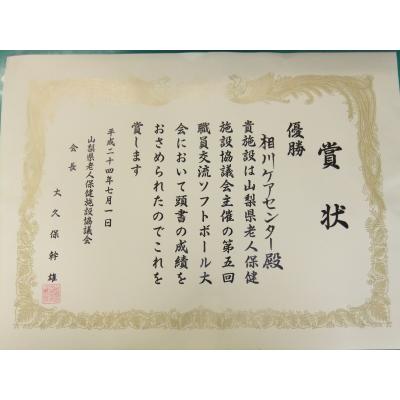 賞状
優勝
相川ケアセンター殿
貴施設は山梨県老人保健
施設協議会主催の第五回
職員交流ソフトボール大
会において頭書の成績を
おさめられたのでこれを
賞します
平成二十四年七月一日
山梨県老人保健施設協議会
会長 大久保幹雄